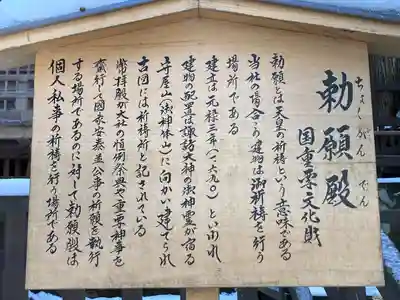 勅願殿
ちょくがんでん
国重要文化財
勅願とは天皇の祈祷という意味である
当社の場合この建物は御祈祷を行う
場所である
建立は元禄三年(一六九〇)といわれ
建物の配置は諏訪大神の御神霊が宿る
守屋山(御神体山)に向かい建てられ
古図には祈祷所と記されている
幣拝殿が大社の恒例祭典や重要神事を
斎行し国家安泰並公事の祈願を執行
する場所であるのに対して勅願殿は
個人私事の祈祷を行う場所である